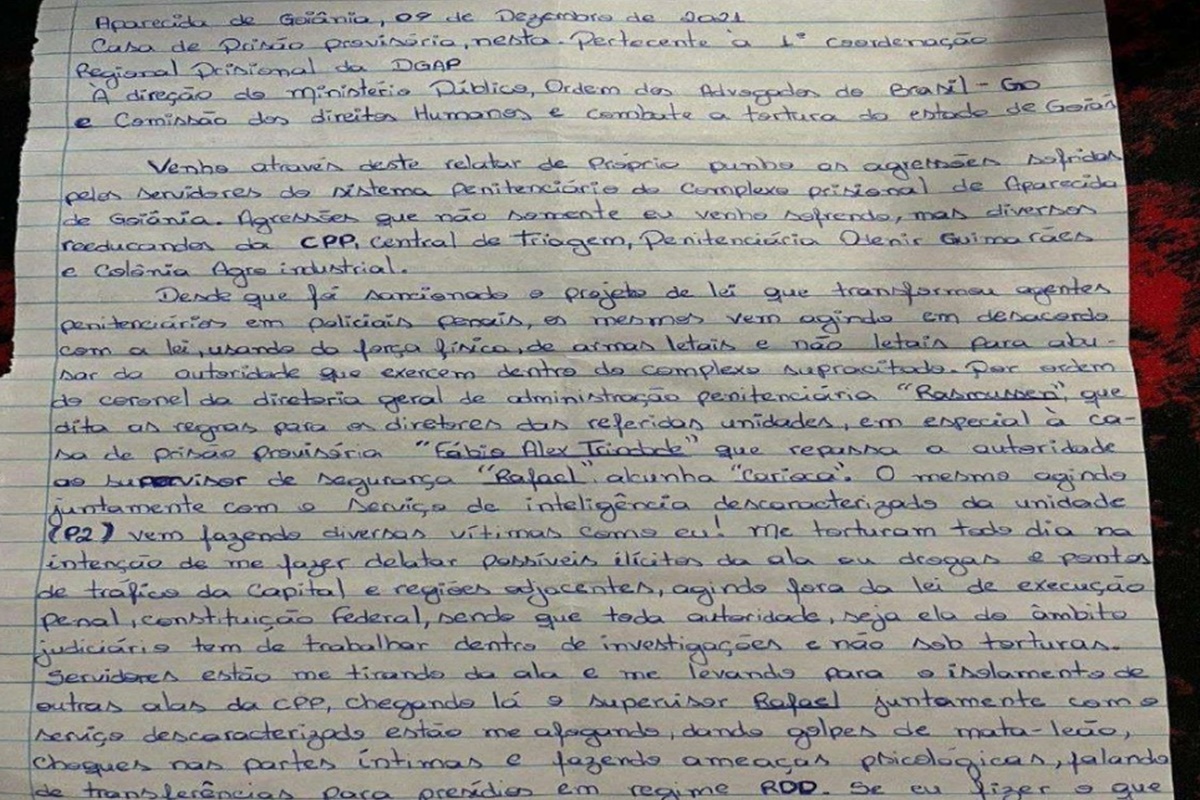 Aparecida de Goiânia, 09 de Dezembro de 2021
Casa de Prisão provisória, nesta. Pertecente à 1ª coordenação
Regional Prisional da DGAP
À direção do ministério Público, Ordem dos Advogados do Brasil - GO
e Comissão dos direitos Humanos e combate a tortura do estado de Goiás
Venho através deste relatar de Próprio punho as agressões sofridas
pelos servidores do sistema penitenciário do Complexo prisional de Aparecida
de Goiânia. Agressões que não somente eu venho sofrendo, mas diversos
reeducandos da CPP, Central de Triagem, Penitenciária Odenir Guimarães
e Colônia Agro industrial.
Desde que foi sancionado o projeto de lei que transformou agentes
penitenciários em policiais penais, os mesmos vem agindo em desacordo
com a lei, usando da força física, de armas letais e não letais para abu-
sar da autoridade que exercem dentro do complexo supracitado. Por ordem
do coronel da diretoria geral de administração penitenciária "Rasmussen", que
dita as regras para os diretores das referidas unidades, em especial à ca-
sa de prisão provisória "Fábio Alex Trindade" que repassa a autoridade
ao supervisor de segurança "Rafael" alcunha "Carioca". O mesmo agindo
juntamente com o serviço de inteligência descaracterizado da unidade
(P2) vem fazendo diversas vítimas como eu! me torturam todo dia na
intenção de me fazer delatar possíveis ilícitos da ala ou drogas e pontos
de tráfico da Capital e regiões adjacentes, agindo fora da lei de execução
penal, constituição Federal, sendo que toda autoridade, seja ela do âmbito
judiciário tem de trabalhar dentro de investigações e não sob torturas.
Servidores estão me tirando da ala e me levando para o isolamento de
outras alas da CPP, chegando lá o supervisor Rafael juntamente com o
serviço descaracterizado estão me afogando, dando golpes de mata-leão,
choques nas partes íntimas e fazendo ameaças psicológicas, falando
de transferências para presídios em regime RDD. Se eu fizer o que